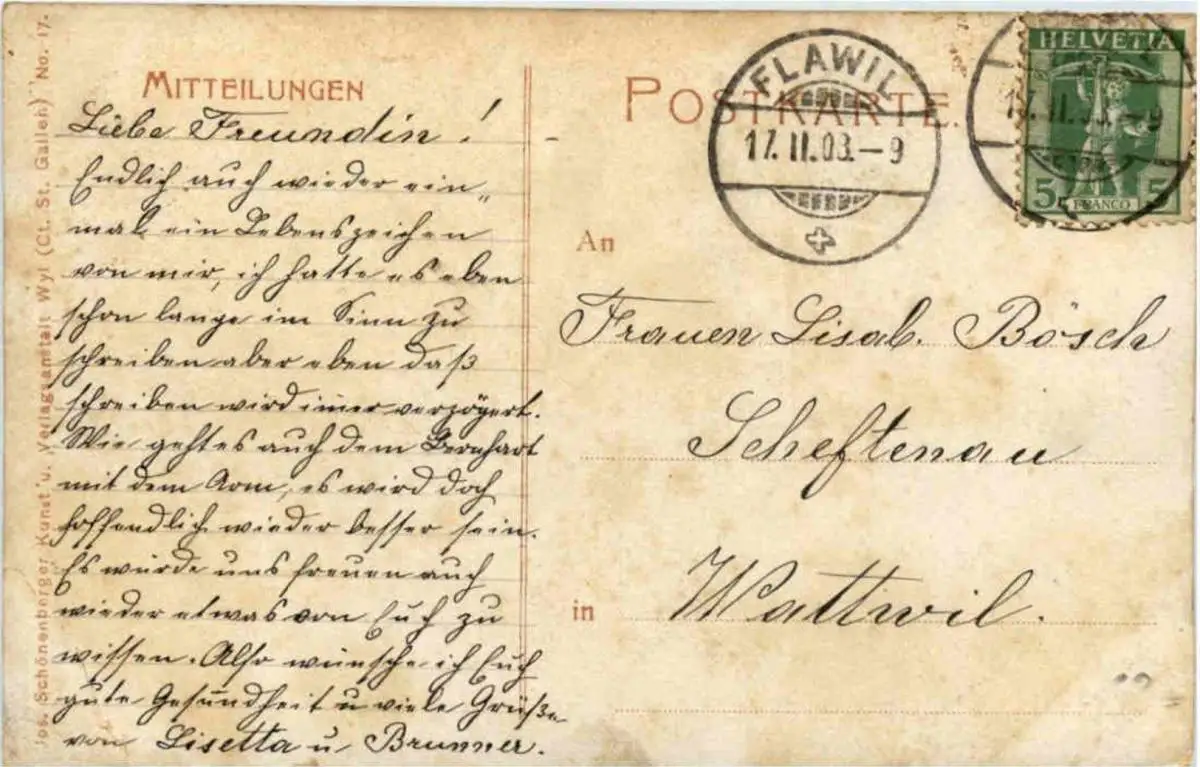 MITTEILUNGEN
Liebe Freundin!
Endlich auch wieder ein„
mal ein Lebenszeichen
von mir, ich hatte es eben
schon lange im Sinn zu
schreiben aber eben daß
schreiben wird imer verzögert.
Wie geht es auch dem Bernhart
mit dem Arm, es wird doch
hoffendlich wieder besser sein.
Es würde uns freuen auch
wieder etwas von Euch zu
wissen. Also wünsche ich Euch
gute Gesundheit u viele Grüße
von Lisetta u. Brunner.
Jos. Schönenberger, Kunst u. Verlagsanstalt Wyl (Ct. St. Gallen) No. 17.
POSTKARTE.
FLAWIL
17. II. 08. – 9
HELVETIA
5 FRANCO 5
An
Frauen Lisab. Bösch
Scheftenau
in Wattwil.